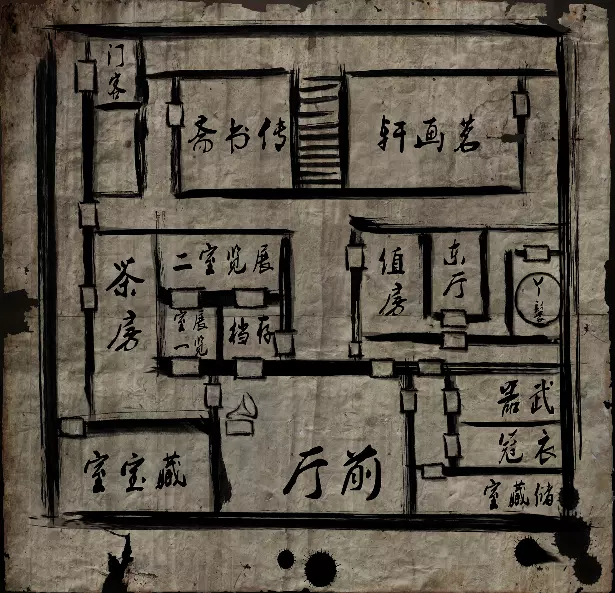 门客
传书斋
茗画轩
茶房
展览室二
值房
东厅
丫鬟
展览
室一
存档
武器
衣冠
储藏室
藏宝室
前厅